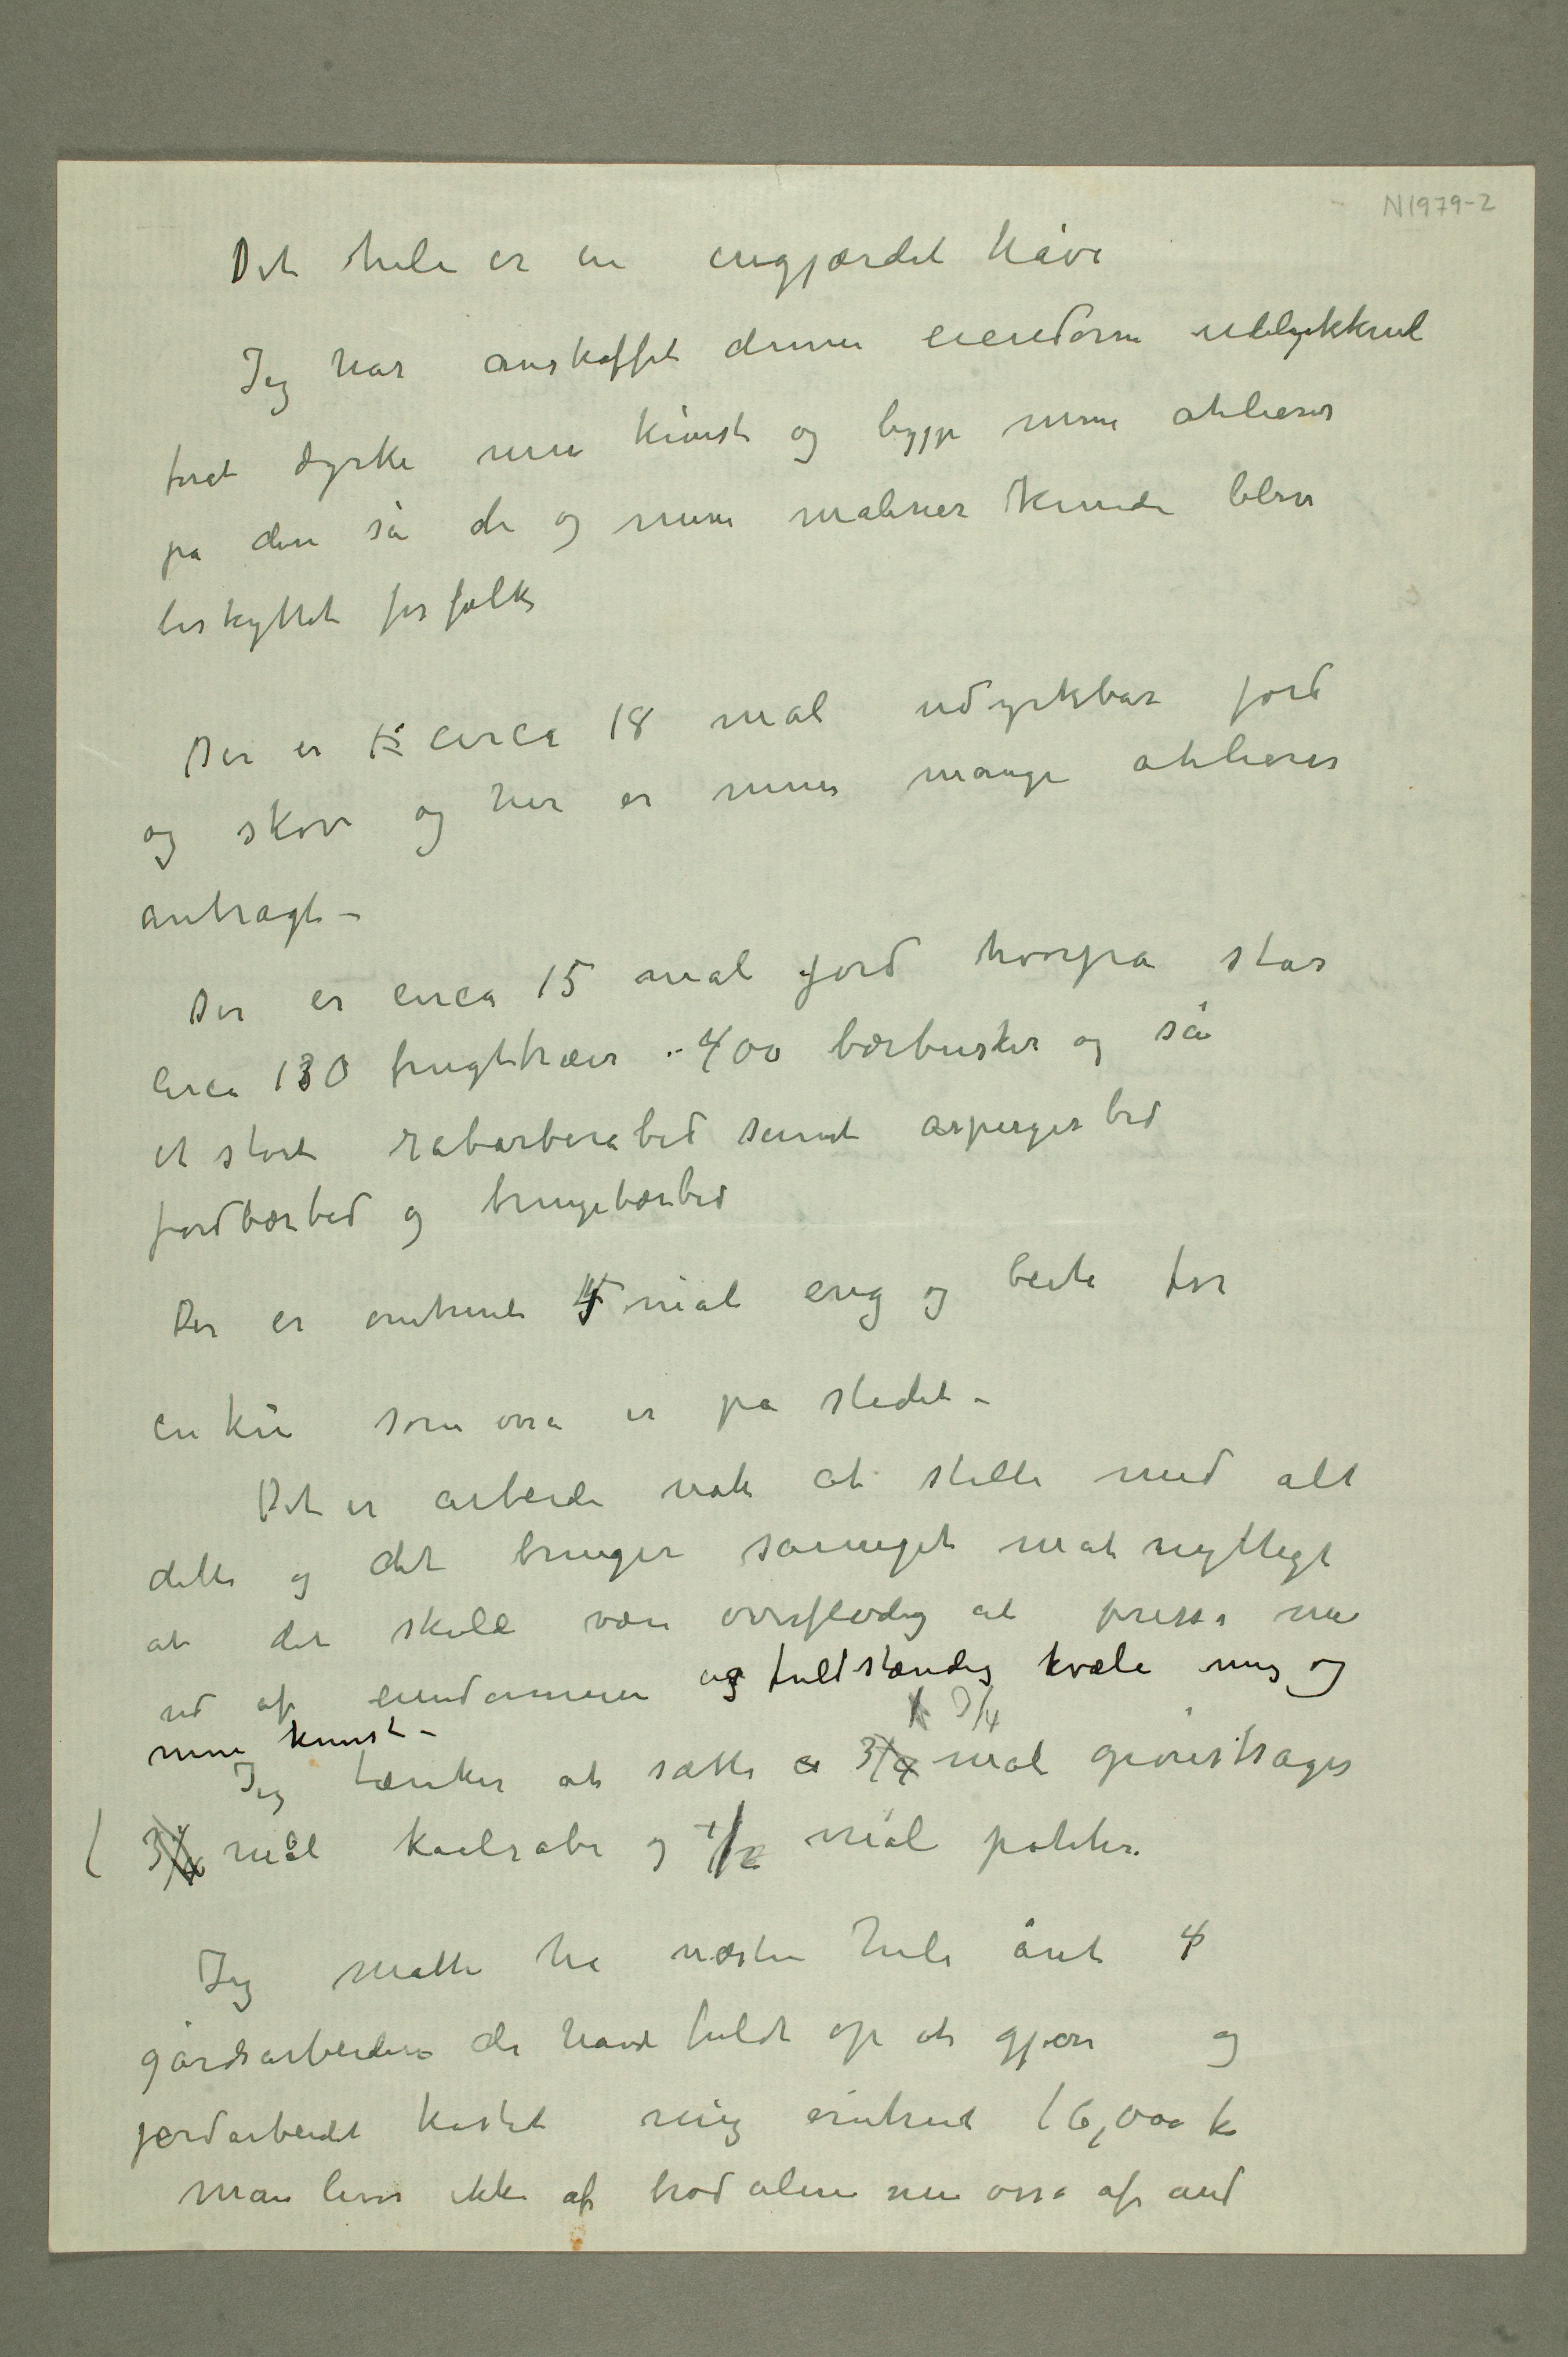 N1979-2
Det hele er en ingjærdet have
Jeg har anskaffet denne eiendom udelukkende
forat dyrke min kunst og bygge mine atelierer
på den så de og mine malerier kunde blive
beskyttet for folk
Der er 15 circa 18 mål udyrkbar jord
og skov og her er mine mange atelierer
anbragt –
Der er circa 15 mål jord hvorpå står
circa 130 frugttrær 400 bærbusker og så
et stort rabarberabed samt aspargesbed
jordbærbed og bringebærbed
Der er omtrent 4 mål eng og beite for
en ku som osså er på stedet –
Det er arbeide nok at stelle med alt
dette og det bringer såmeget mat nyttigt
at det skulde være overflødig at presse mig
ud af eiendommen og fuldstændig kvæle mig og
min kunst –
1 3/4
Jeg tænker at sætte a 3/4 mål grønsager
1 3/4 mål kaalrabi og 1/2 mål poteter.
Jeg måtte ha næsten hele året 4
gårdsarbeidere de havde fuldt op at gjøre og
jordarbeidet kostet mig omtrent 16,000 kr
Man lever ikke af brød alene men osså af ånd